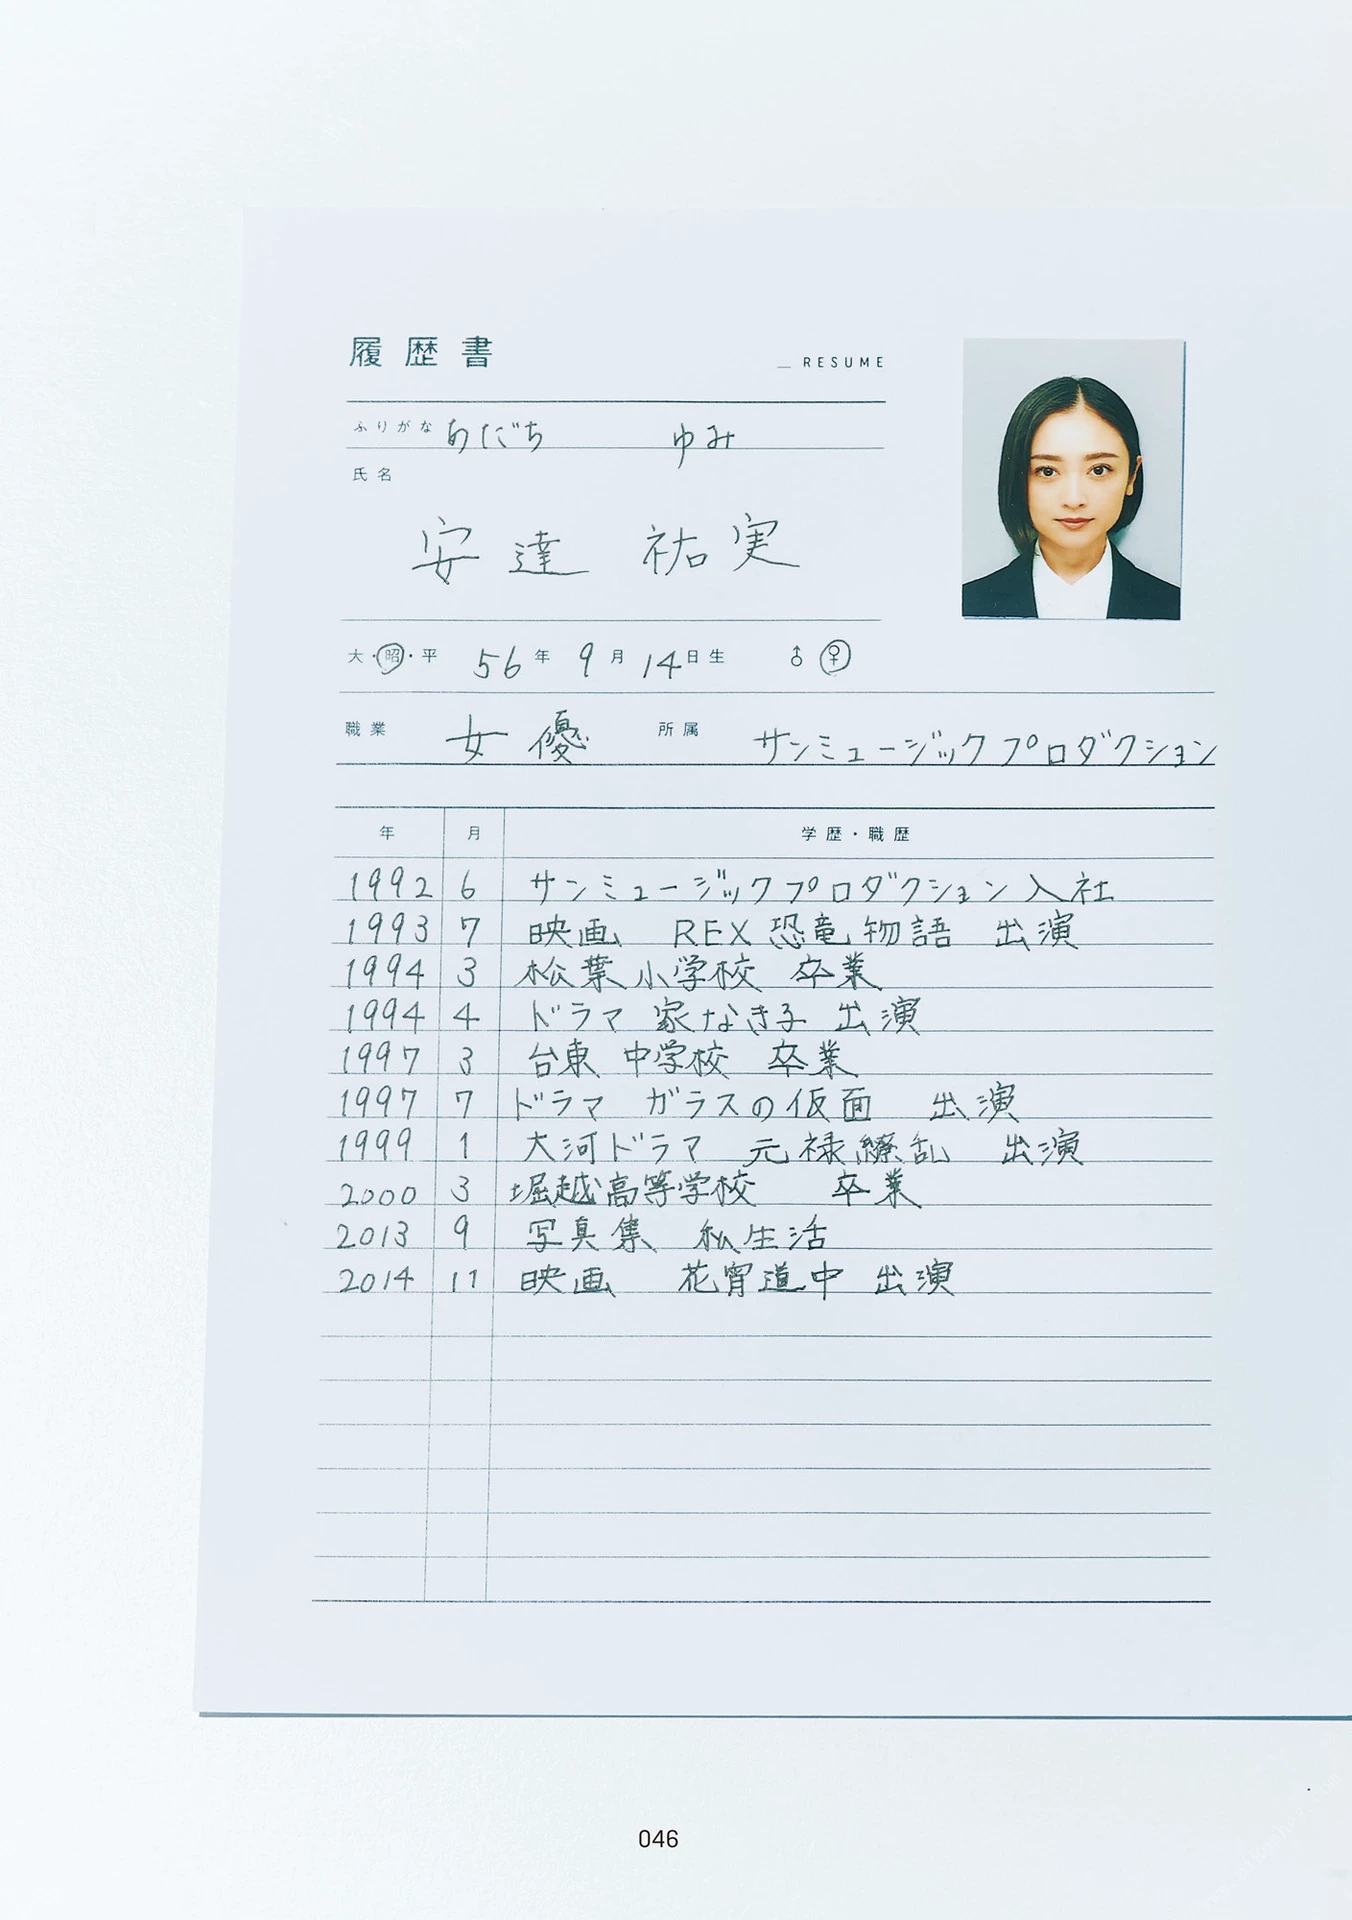 履歴書
_ RESUME
ふりがな あだち ゆみ
氏名
安達 祐実
大・昭・平 56年 9月 14日生 ♂ ♀
職業 女優 所属 サンミュージックプロダクション
年 月 学歴・職歴
1992 6 サンミュージックプロダクション入社
1993 7 映画 REX恐竜物語 出演
1994 3 松葉小学校 卒業
1994 4 ドラマ 家なき子 出演
1997 3 台東 中学校 卒業
1997 7 ドラマ ガラスの仮面 出演
1999 1 大河ドラマ 元禄繚乱 出演
2000 3 堀越高等学校 卒業
2013 9 写真集 私生活
2014 11 映画 花宵道中 出演
046